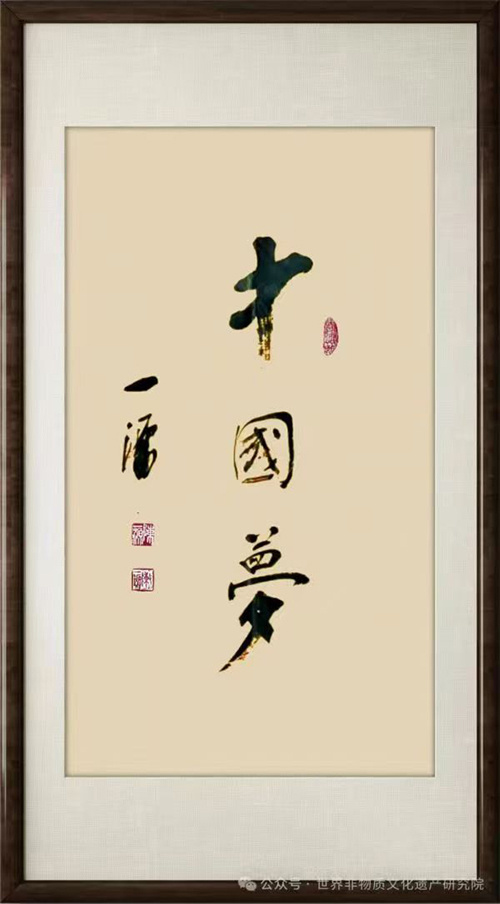 中國夢
一
公众号·世界非物质文化遗产研究院